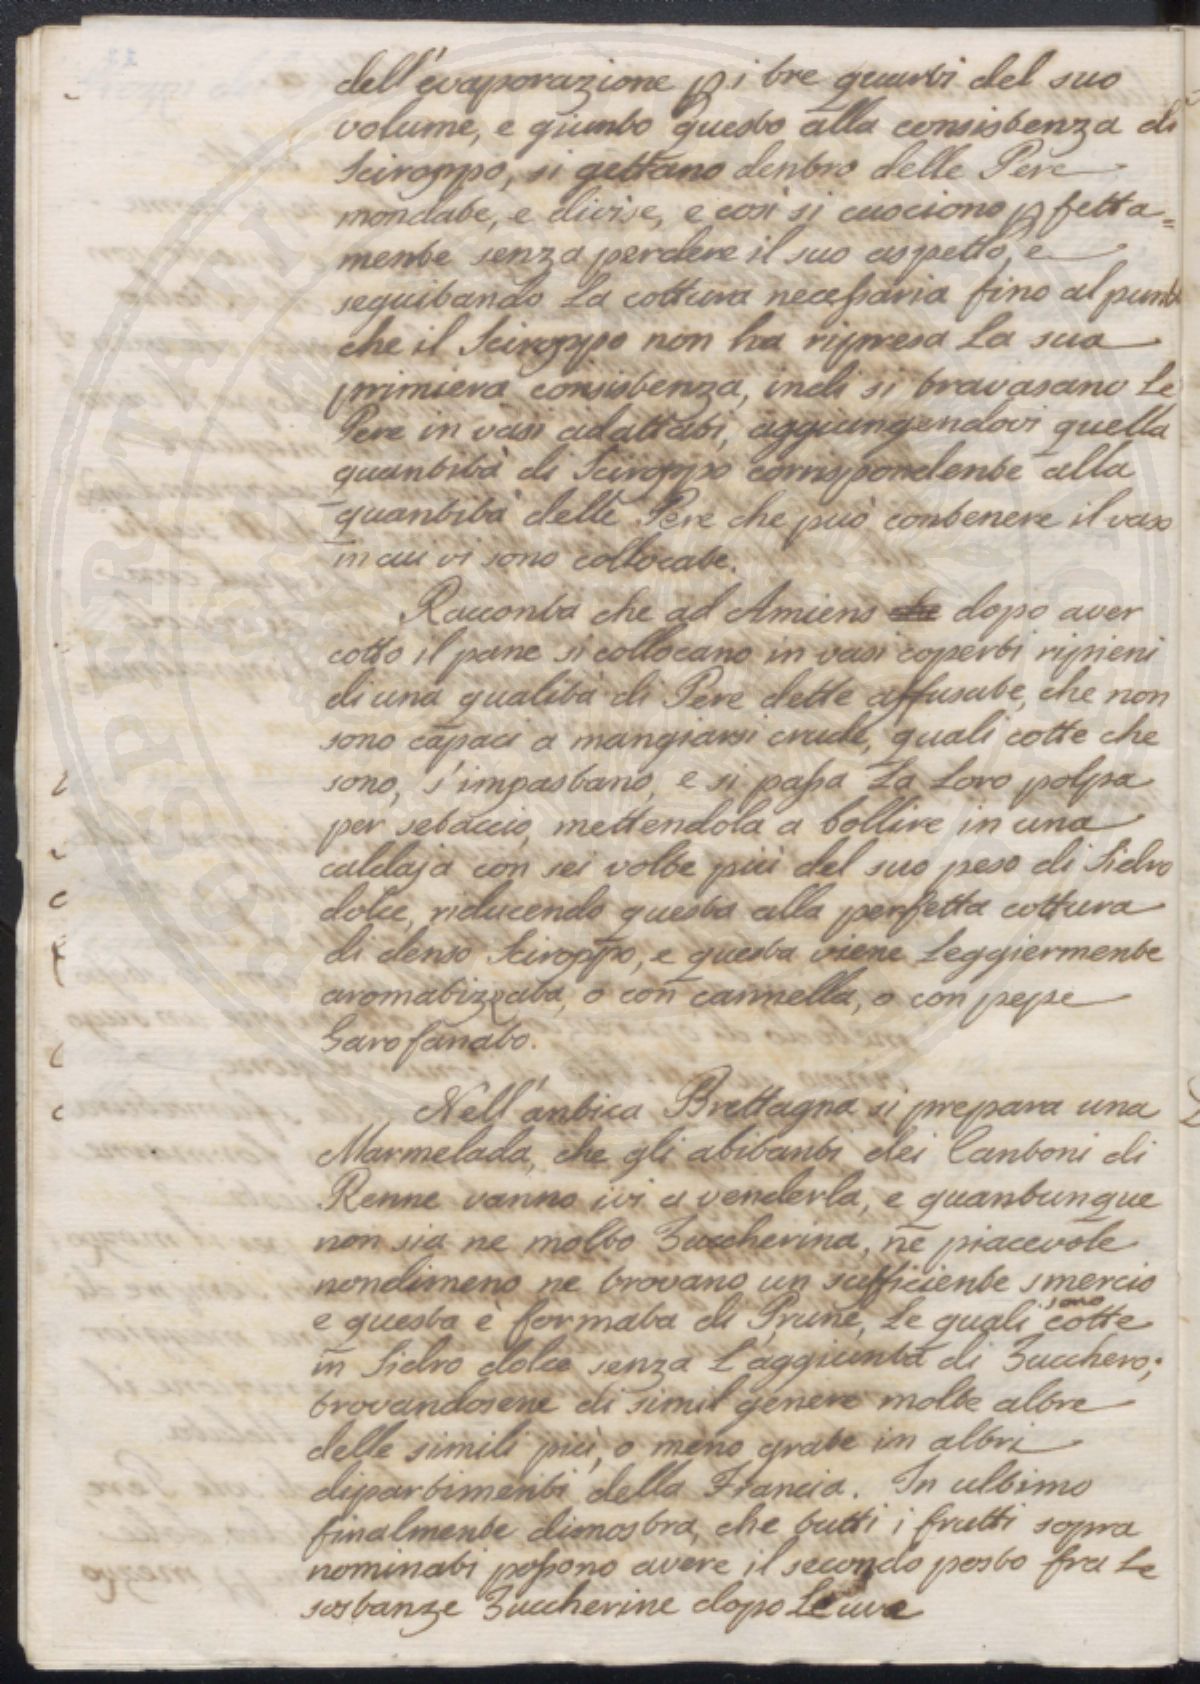 dell'evaporazione p i tre quarti del suo
volume, e giunto questo alla consistenza di
Sciroppo, si gettano dentro delle Pere
mondate, e divise, e così si cuociono pfetta=
mente senza perdere il suo aspetto, e
seguitando la cottura necessaria fino al punto
che il Sciroppo non ha ripresa la sua
primiera consistenza, indi si travasano le
Pere in vasi adattati, aggiungendovi quella
quantità di Sciroppo corrispondente alla
quantità delle Pere che può contenere il vaso
in cui vi sono collocate.
Racconta che ad Amiens che dopo aver
cotto il pane si collocano in vasi coperti ripieni
di una qualità di Pere dette affusate, che non
sono capaci a mangiarsi crude, quali cotte che
sono, s'impastano, e si passa la loro polpa
per setaccio, mettendola a bollire in una
caldaja con sei volte più del suo peso di Sidro
dolce, riducendo questa alla perfetta cottura
di denso Sciroppo, e questa viene leggiermente
aromatizzata, o con cannella, o con pepe
Garofanato.
Nell'antica Brettagna si prepara una
Marmelada, che gli abitanti dei Cantoni di
Renne vanno ivi a venderla, e quantunque
non sia ne molto Zuccherina, ne piacevole
nondimeno ne trovano un sufficiente smercio
e questa è formata di Prune, le quali sono cotte
in Sidro dolce senza l'aggiunta di Zucchero;
trovandosene di simil genere molte altre
delle simili più, o meno grate in altri
dipartimenti della Francia. In ultimo
finalmente dimostra, che tutti i frutti sopra
nominati possono avere il secondo posto fra le
sostanze Zuccherine dopo le uve